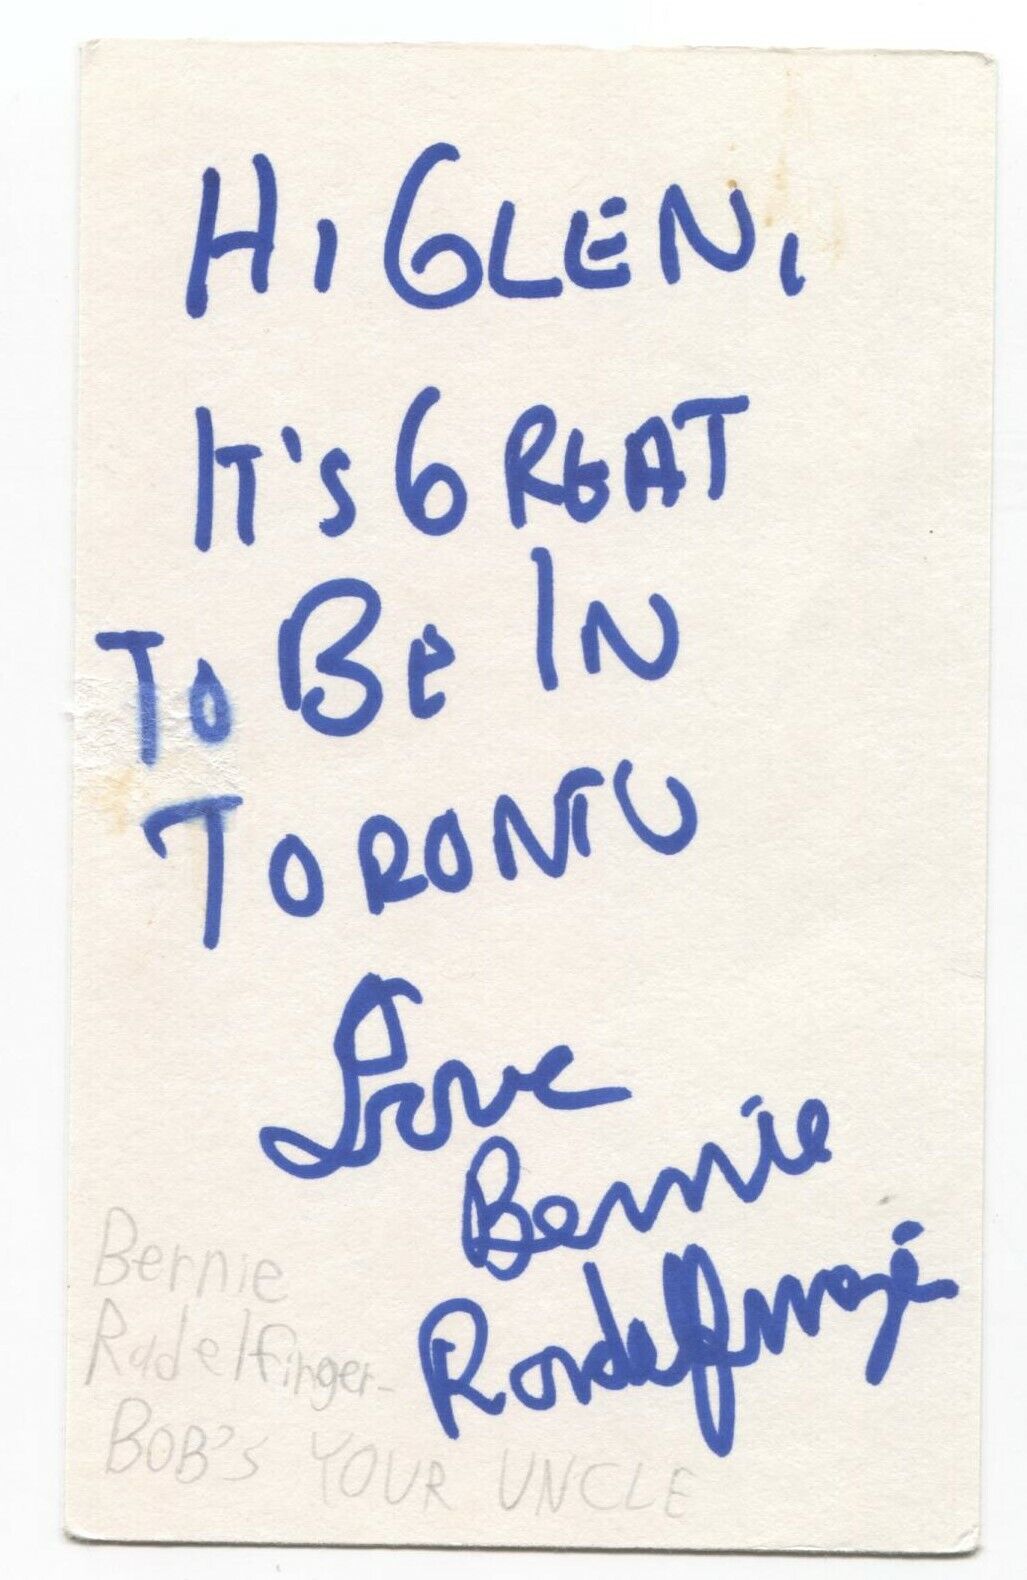 Hi GLEN,
IT'S GREAT
To Be IN
TORONTO
Love
Bernie
Radelfinger
Bernie
Radelfinger-
BOB'S YOUR UNCLE